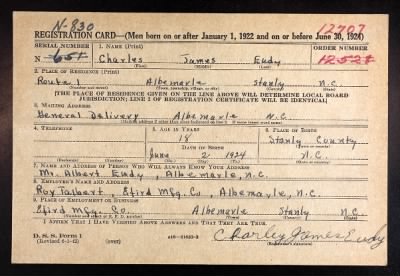 N-830 12707
REGISTRATION CARD—(Men born on or after January 1, 1922 and on or before June 30, 1924)
SERIAL NUMBER 1. NAME (Print) ORDER NUMBER
N 651 Charles James Eudy 12521
(First) (Middle) (Last)
2. PLACE OF RESIDENCE (Print)
Route 1 Albemarle Stanly N.C.
(Number and street) (Town, township, village, or city) (County) (State)
[THE PLACE OF RESIDENCE GIVEN ON THE LINE ABOVE WILL DETERMINE LOCAL BOARD
JURISDICTION; LINE 2 OF REGISTRATION CERTIFICATE WILL BE IDENTICAL]
3. MAILING ADDRESS
General Delivery Albemarle N.C.
[Mailing address if other than place indicated on line 2. If same, insert word same]
4. TELEPHONE 5. AGE IN YEARS 6. PLACE OF BIRTH
18 Stanly County
DATE OF BIRTH (Town or county)
June 2 1924 N.C.
(Exchange) (Number) (Mo.) (Day) (Yr.) (State or country)
7. NAME AND ADDRESS OF PERSON WHO WILL ALWAYS KNOW YOUR ADDRESS
Mr. Albert Eudy, Albemarle, N.C.
8. EMPLOYER'S NAME AND ADDRESS
Roy Talbert, Efird Mfg. Co, Albemarle, N.C.
9. PLACE OF EMPLOYMENT OR BUSINESS
Efird Mfg. Co. Albemarle Stanly N.C.
(Number and street or R. F. D. number) (Town) (County) (State)
I AFFIRM THAT I HAVE VERIFIED ABOVE ANSWERS AND THAT THEY ARE TRUE.
D. S. S. Form 1
(Revised 6-1-42) (over)
Charley James Eudy